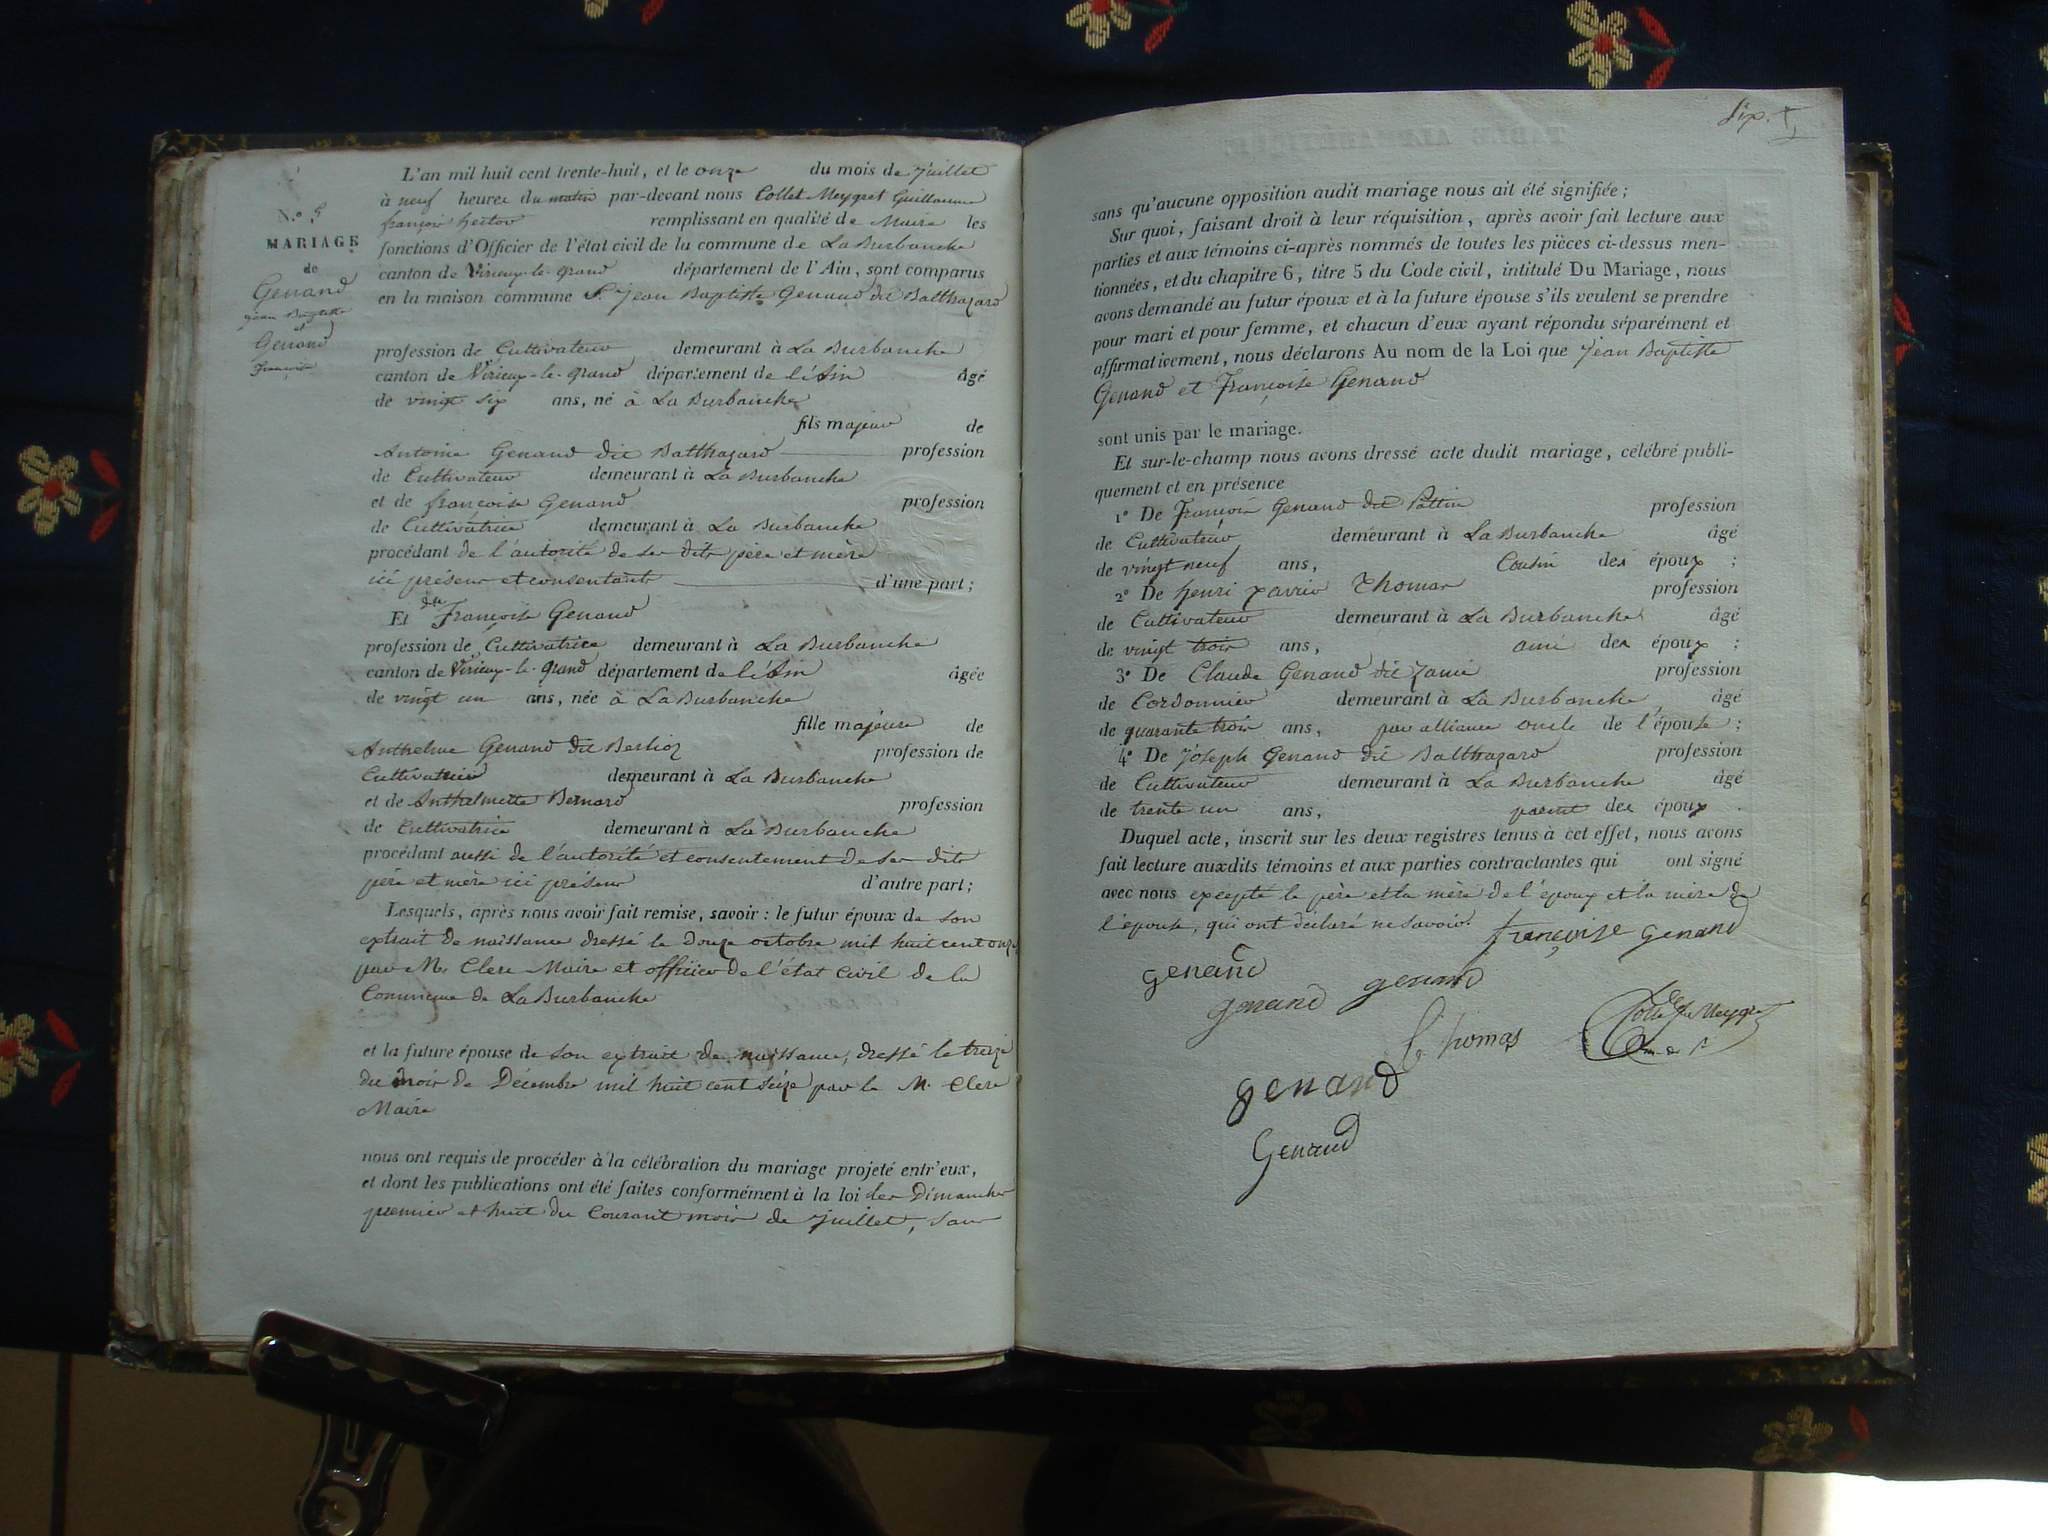 N.º 5
MARIAGE
de
Genand
jean Baptiste
et
Genand
françoise
L'an mil huit cent trente-huit, et le onze du mois de Juillet
à neuf heures du matin par-devant nous Collet Meygret Guillaume
françois hector remplissant en qualité de Maire les
fonctions d'Officier de l'état civil de la commune de La Burbanche
canton de Virieux-le-grand département de l'Ain, sont comparus
en la maison commune S. jean Baptiste Genand dit Balthazard
profession de Cultivateur demeurant à La Burbanche
canton de Virieux-le-grand département de l'Ain âgé
de vingt six ans, né à La Burbanche
fils majeur de
Antoine Genand dit Balthazard profession
de Cultivateur demeurant à La Burbanche
et de françoise Genand profession
de Cultivatrice demeurant à La Burbanche
procédant de l'autorité de ses dits père et mère
ici présens et consentants d'une part;
Et dlle Françoise Genand
profession de Cultivatrice demeurant à La Burbanche
canton de Virieux-le-grand département de l'Ain âgée
de vingt un ans, née à La Burbanche
fille majeure de
Anthelme Genand dit Berlioz profession de
Cultivateur demeurant à La Burbanche
et de Anthelmette Bernard profession
de Cultivatrice demeurant à La Burbanche
procédant aussi de l'autorité et consentement de ses dits
père et mère ici présens d'autre part;
Lesquels, après nous avoir fait remise, savoir: le futur époux de son
extrait de naissance dressé le douze octobre mil huit cent onze
par Mr Clerc Maire et officier de l'état civil de la
Commune de La Burbanche
et la future épouse de son extrait de naissance, dressé le treize
du mois de Décembre mil huit cent seize par le M. Clerc
Maire
nous ont requis de procéder à la célébration du mariage projeté entr'eux,
et dont les publications ont été faites conformément à la loi les Dimanches
premier et huit du Courant mois de juillet, sans
sans qu'aucune opposition audit mariage nous ait été signifiée;
Sur quoi, faisant droit à leur réquisition, après avoir fait lecture aux
parties et aux témoins ci-après nommés de toutes les pièces ci-dessus men-
tionnées, et du chapitre 6, titre 5 du Code civil, intitulé Du Mariage, nous
avons demandé au futur époux et à la future épouse s'ils veulent se prendre
pour mari et pour femme, et chacun d'eux ayant répondu séparément et
affirmativement, nous déclarons Au nom de la Loi que Jean Baptiste
Genand et Françoise Genand
sont unis par le mariage.
Et sur-le-champ nous avons dressé acte dudit mariage, célébré publi-
quement et en présence
1º De François Genand dit Pattin profession
de Cultivateur demeurant à La Burbanche âgé
de vingt neuf ans, Cousin des époux;
2º De henri xavier Thomas profession
de Cultivateur demeurant à La Burbanche âgé
de vingt trois ans, ami des époux;
3º De Claude Genand dit profession
de Cordonnier demeurant à La Burbanche âgé
de quarante trois ans, par alliance oncle de l'épouse;
4º De Joseph Genand dit Balthazard profession
de Cultivateur demeurant à La Burbanche âgé
de trente un ans, parent des époux.
Duquel acte, inscrit sur les deux registres tenus à cet effet, nous avons
fait lecture auxdits témoins et aux parties contractantes qui ont signé
avec nous excepté le père et la mère de l'époux et la mère de
l'épouse, qui ont déclaré ne savoir.
françoise genand
genand
genand genand
thomas
Collet Meygret
genand
Genand